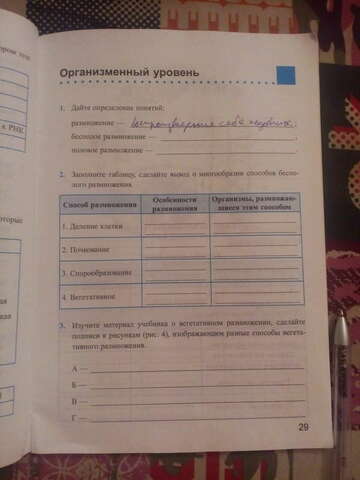 Организменный уровень
1. Дайте определение понятий:
размножение — воспроизведение себе подобных.
бесполое размножение —
половое размножение —
2. Заполните таблицу, сделайте вывод о многообразии способов беспо-
лого размножения.
Способ размножения Особенности размножения Организмы, размножаю-
щиеся этим способом
1. Деление клетки
2. Почкование
3. Спорообразование
4. Вегетативное
3. Изучите материал учебника о вегетативном размножении, сделайте
подписи к рисункам (рис. 4), изображающим разные способы вегета-
тивного размножения.
А —
Б —
В —
Г —
29
к РНК.
которые